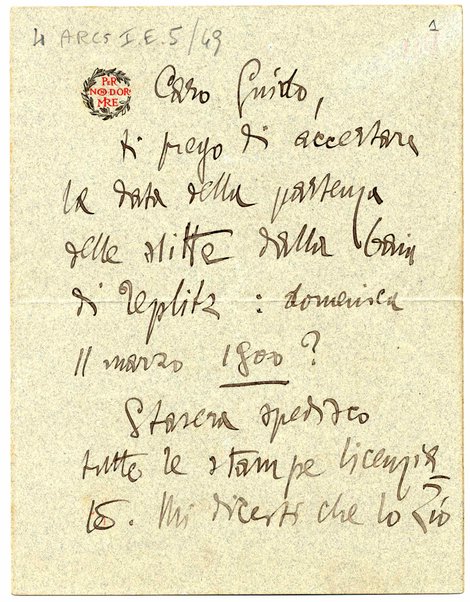 4 ARCS I.E.5/49
1
PER
NON DOR
MIRE
Caro Guido,
ti prego di accertare
la data della partenza
delle slitte dalla baia
di Teplitz : domenica
11 marzo 1900 ?
Stasera spedisco
tutte le stampe licenzia
te. Mi dicesti che lo Zio